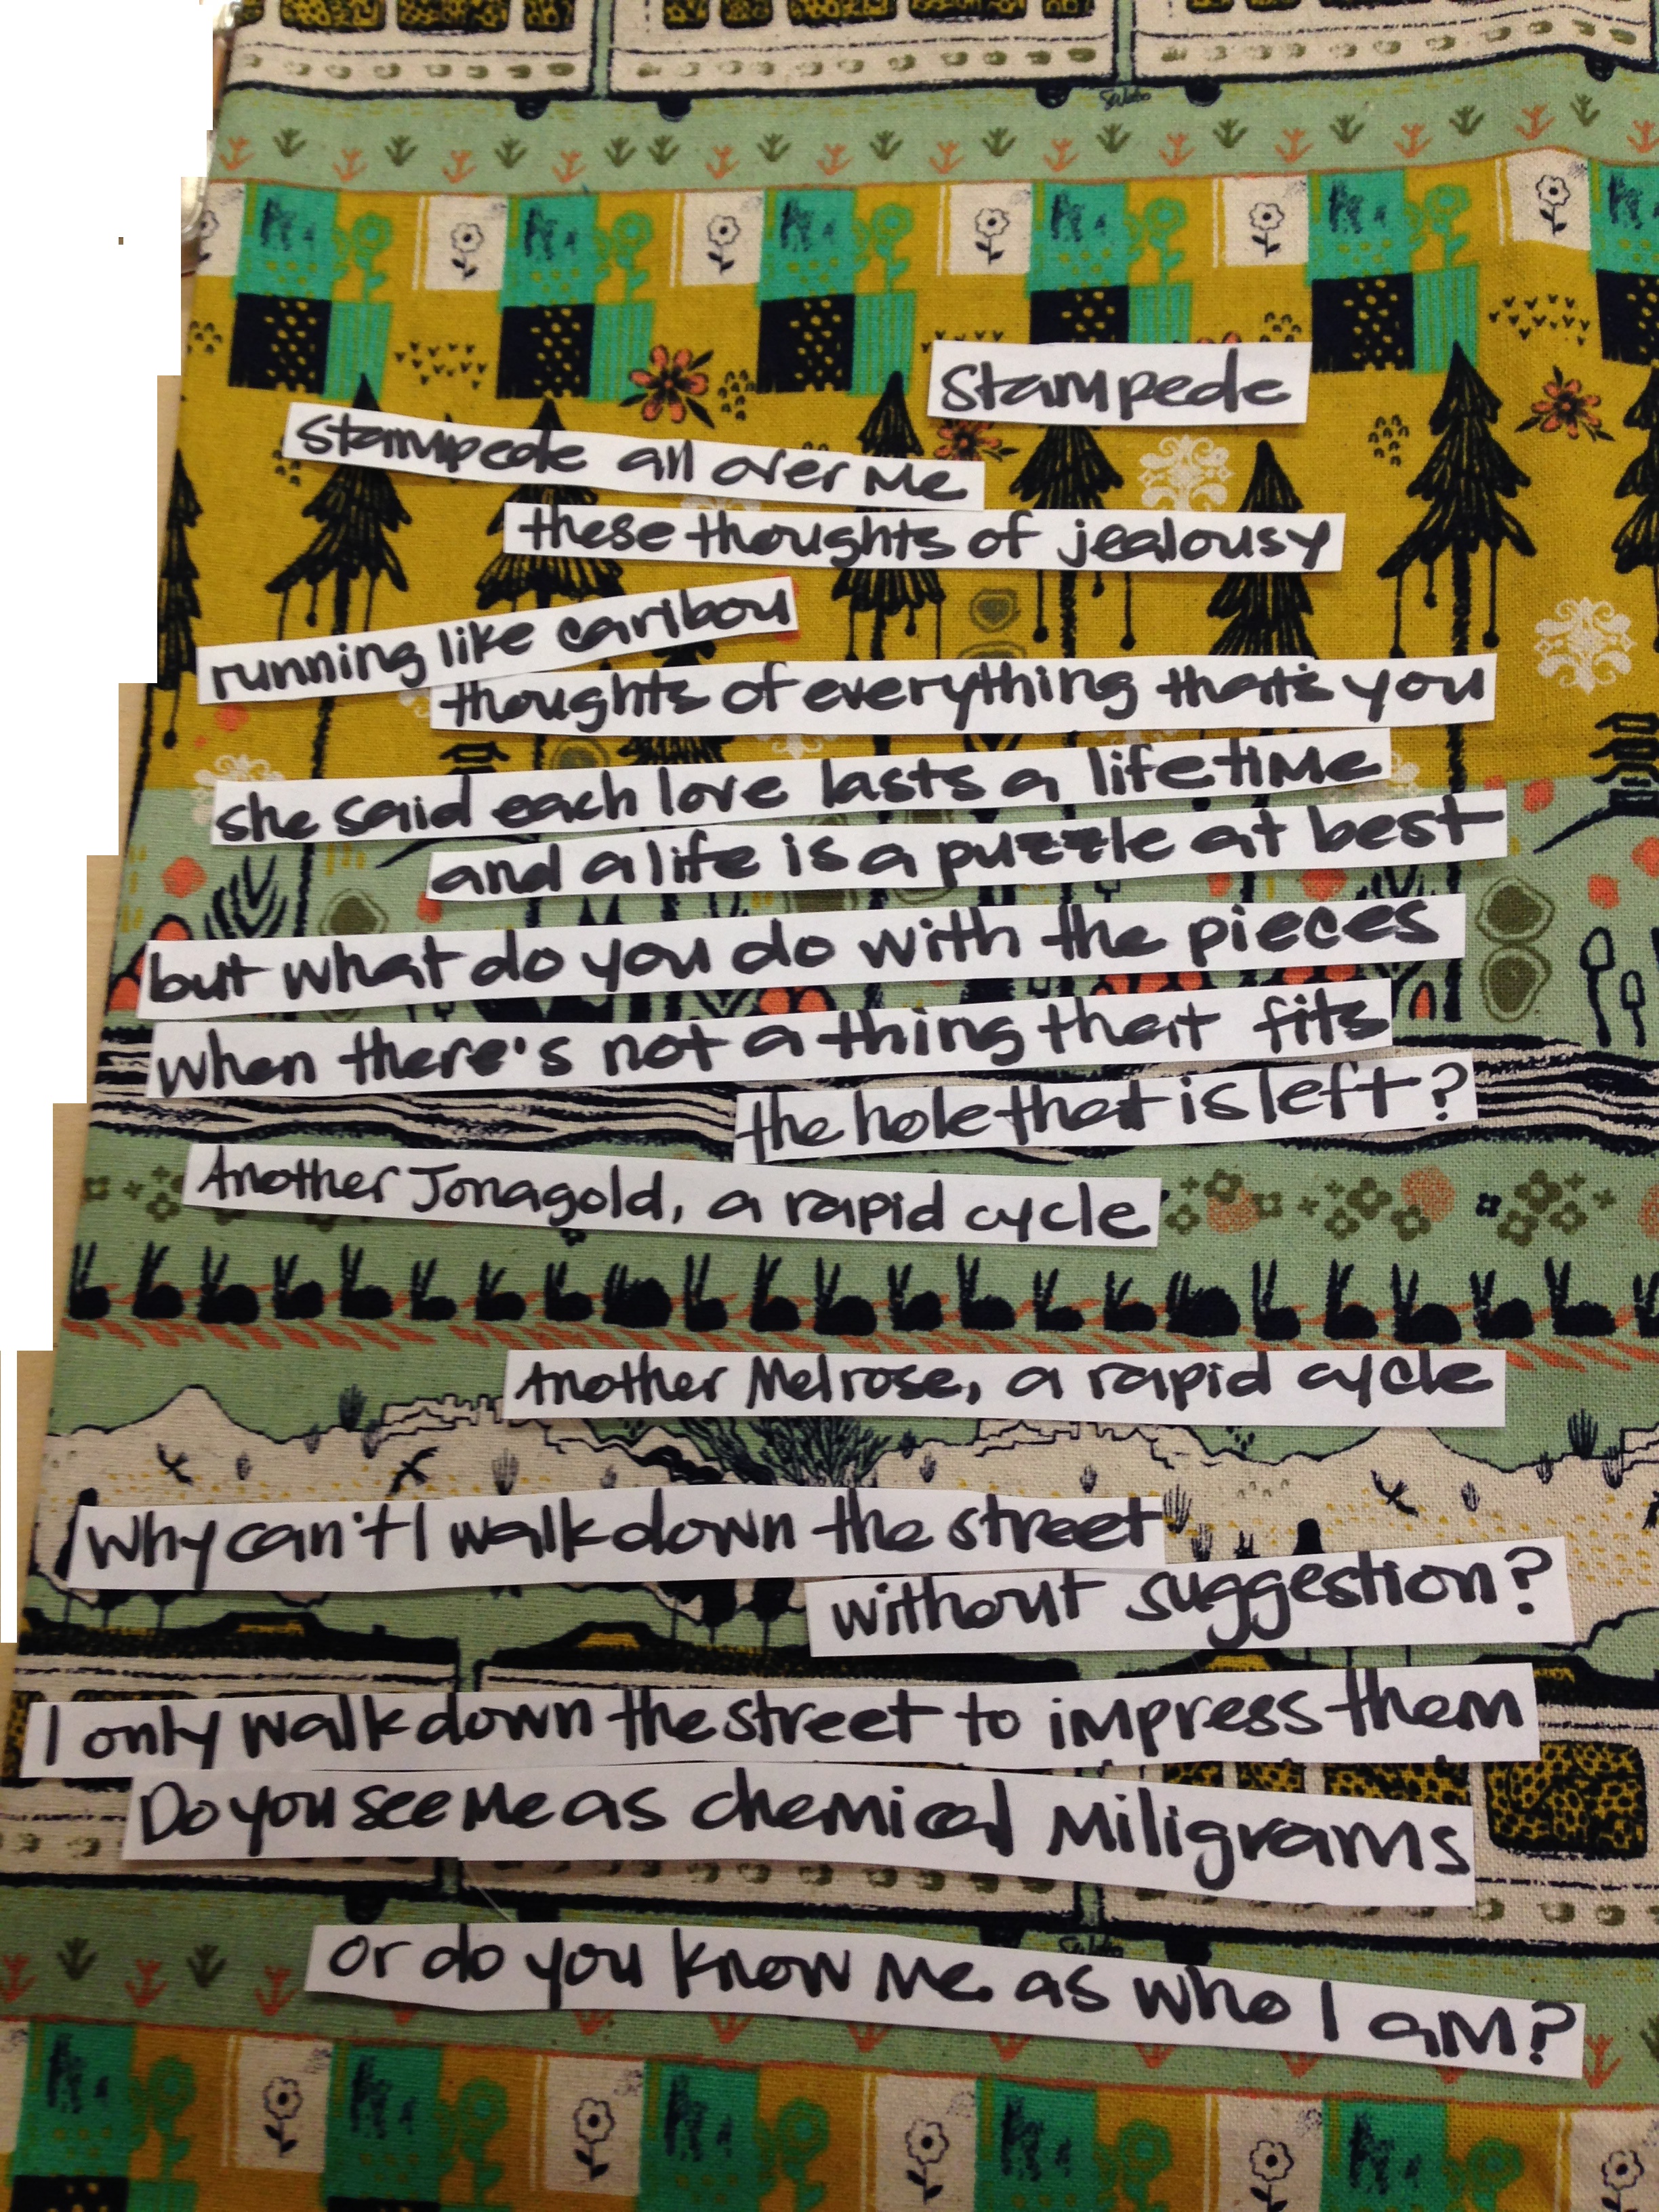 Stampede
Stampede all over me
these thoughts of jealousy
running like caribou
thoughts of everything that's you
she said each love lasts a lifetime
and a life is a puzzle at best
but what do you do with the pieces
when there's not a thing that fits
the hole that is left?
Another Jonagold, a rapid cycle
Another Melrose, a rapid cycle
Why can't I walk down the street
without suggestion?
I only walk down the street to impress them
Do you see me as chemical miligrams
or do you know me as who I am?